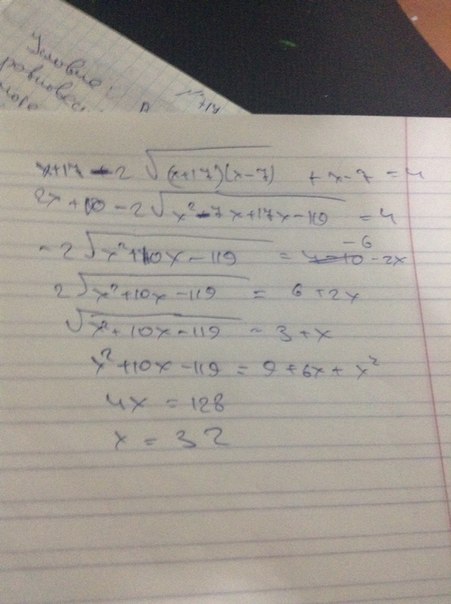 Условие:
x+17 - 2 √(x+17)(x-7) + x-7 = 4
2x+10 - 2 √x²-7x+17x-119 = 4
-2 √x²+10x-119 = -6 -2x
2 √x²+10x-119 = 6+2x
√x²+10x-119 = 3+x
x²+10x-119 = 9+6x+x²
4x = 128
x = 32